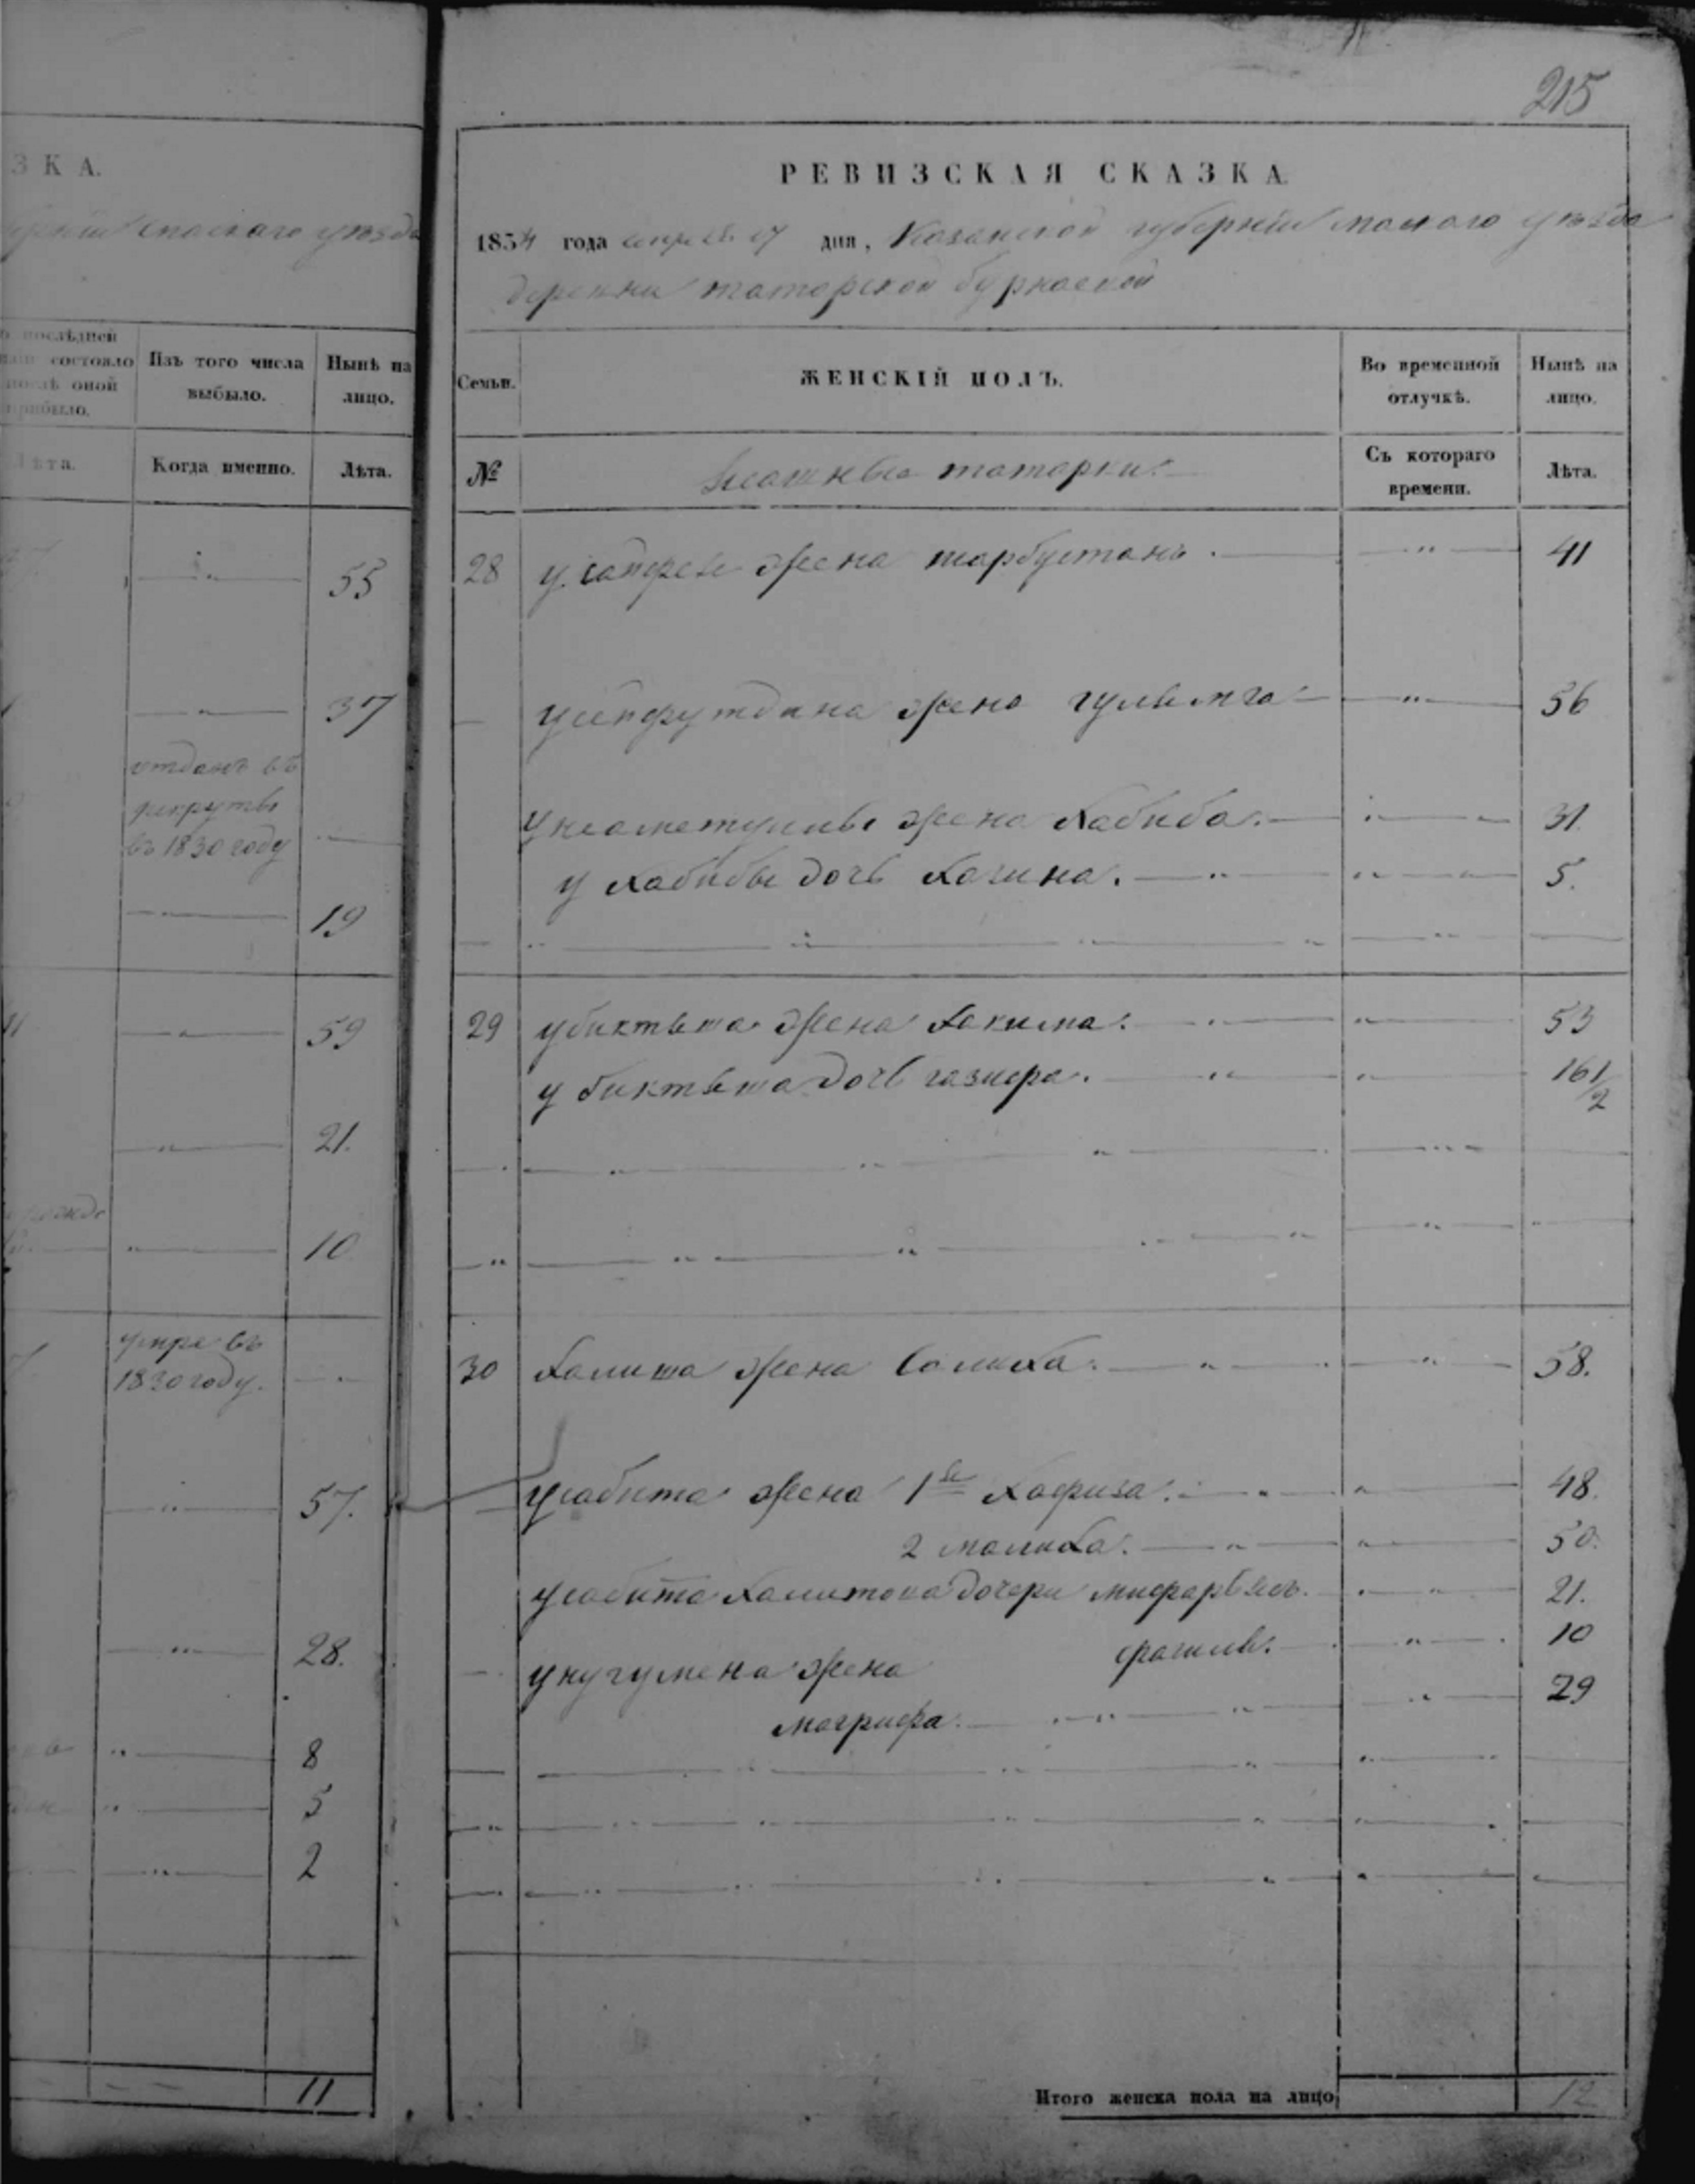 215
З К А.
спаскаго уѣзда
о послѣдней
состояло
послѣ оной
прибыло.
Изъ того числа
выбыло.
Нынѣ на
лицо.
Лѣта.
Когда именно.
Лѣта.
55
37
отданъ въ
рекруты
въ 1830 году
19
59
21.
10
умре въ
1830 году.
57.
28.
8
5
2
11
РЕВИЗСКАЯ СКАЗКА
1834 года апреля 17 дня, Казанской губерніи спаскаго уѣзда
деревни татарской бурнаевой
Семьи.
ЖЕНСКІЙ ПОЛЪ.
Во временной
отлучкѣ.
Нынѣ на
лицо.
№
татарки.
Съ котораго
времени.
Лѣта.
28 жена шарбустанъ. 41
усейфутдина жена гулямга 56
жена хабиба. 31.
у хабибы дочь хагина. 5.
29 убиктѣша жена хакима. 53
у биктѣша дочь газифа. 16 1/2
30 халита жена салиха. 58.
усабита жена 1я хафиза. 48.
2 малиха. 50.
усабита халитова дочери мифарѣясъ. 21.
фагиль. 10
унугумена жена
магрифа. 29
Итого женска пола на лицо 12